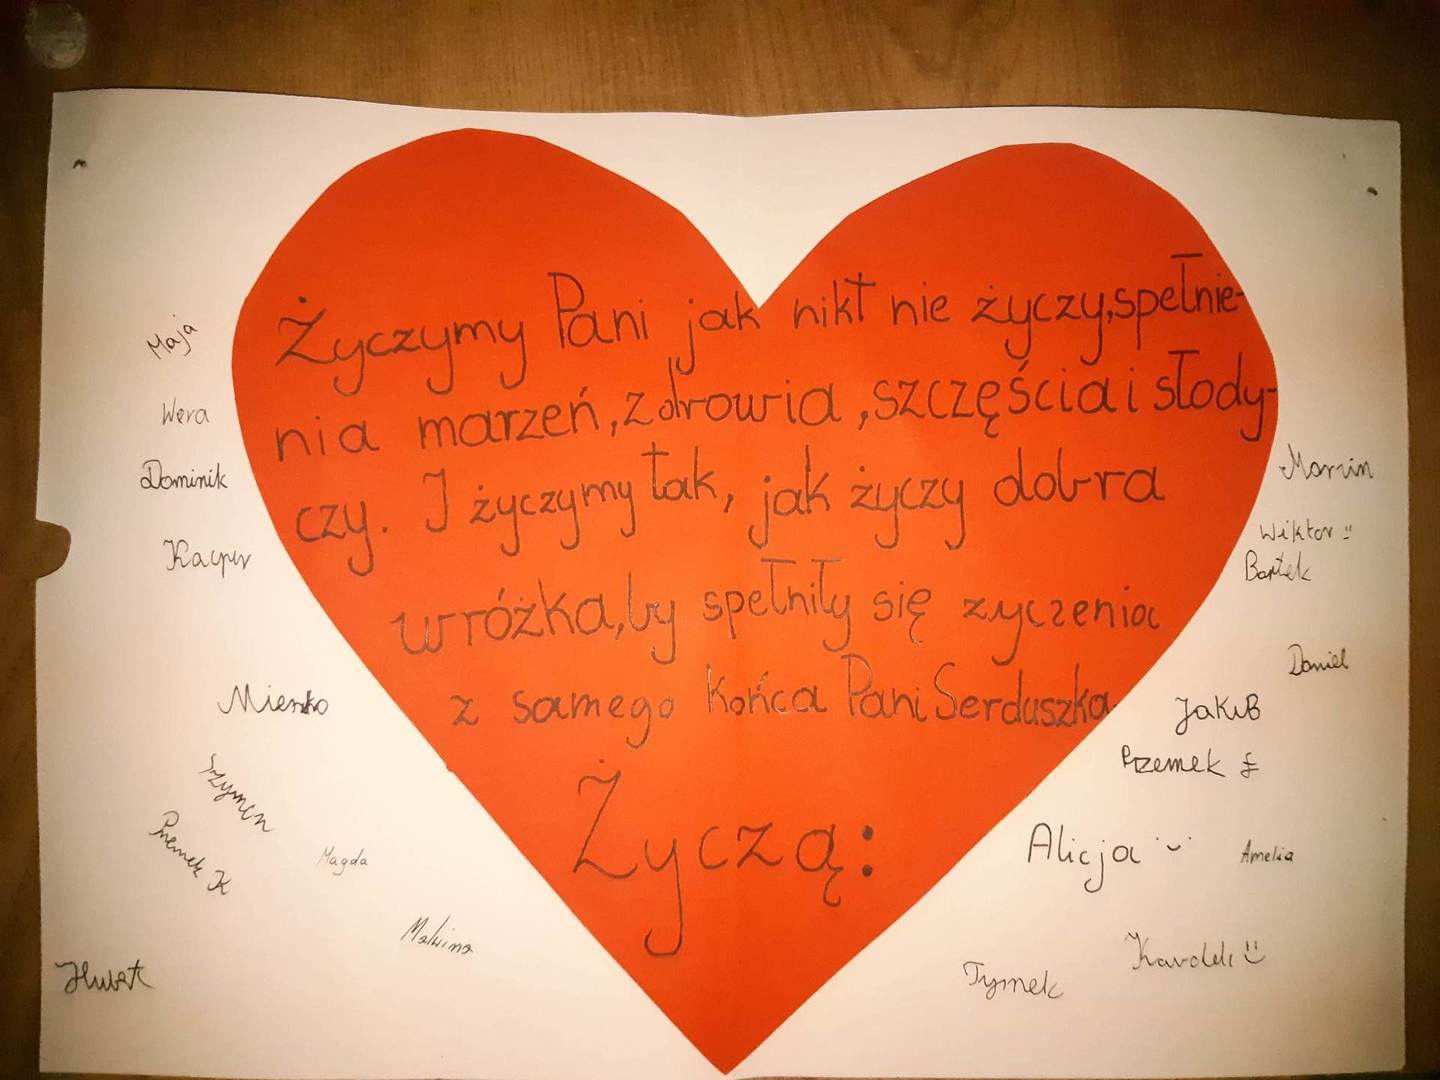 Życzymy Pani jak nikt nie życzy, spełnie-
nia marzeń, zdrowia, szczęścia i słody-
czy. I życzymy tak, jak życzy dobra
wróżka, by spełniły się zyczenia
z samego końca Pani Serduszka.
Życzą:
Maja
Wera
Dominik
Kacper
Mieszko
Szymon
Przemek K
Magda
Malwina
Hubert
Marcin
Wiktor
Bartek
Daniel
JakuB
Przemek
Alicja
Amelia
Tymek